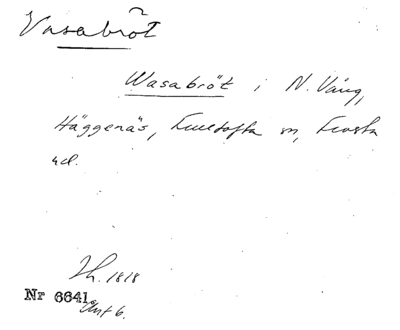 Vasabröt
Wasabröt i N. Väng,
Häggenäs, Fulltofta sn, Frosta
hd.
Th. 1818
Nr 6641
Ant 6.